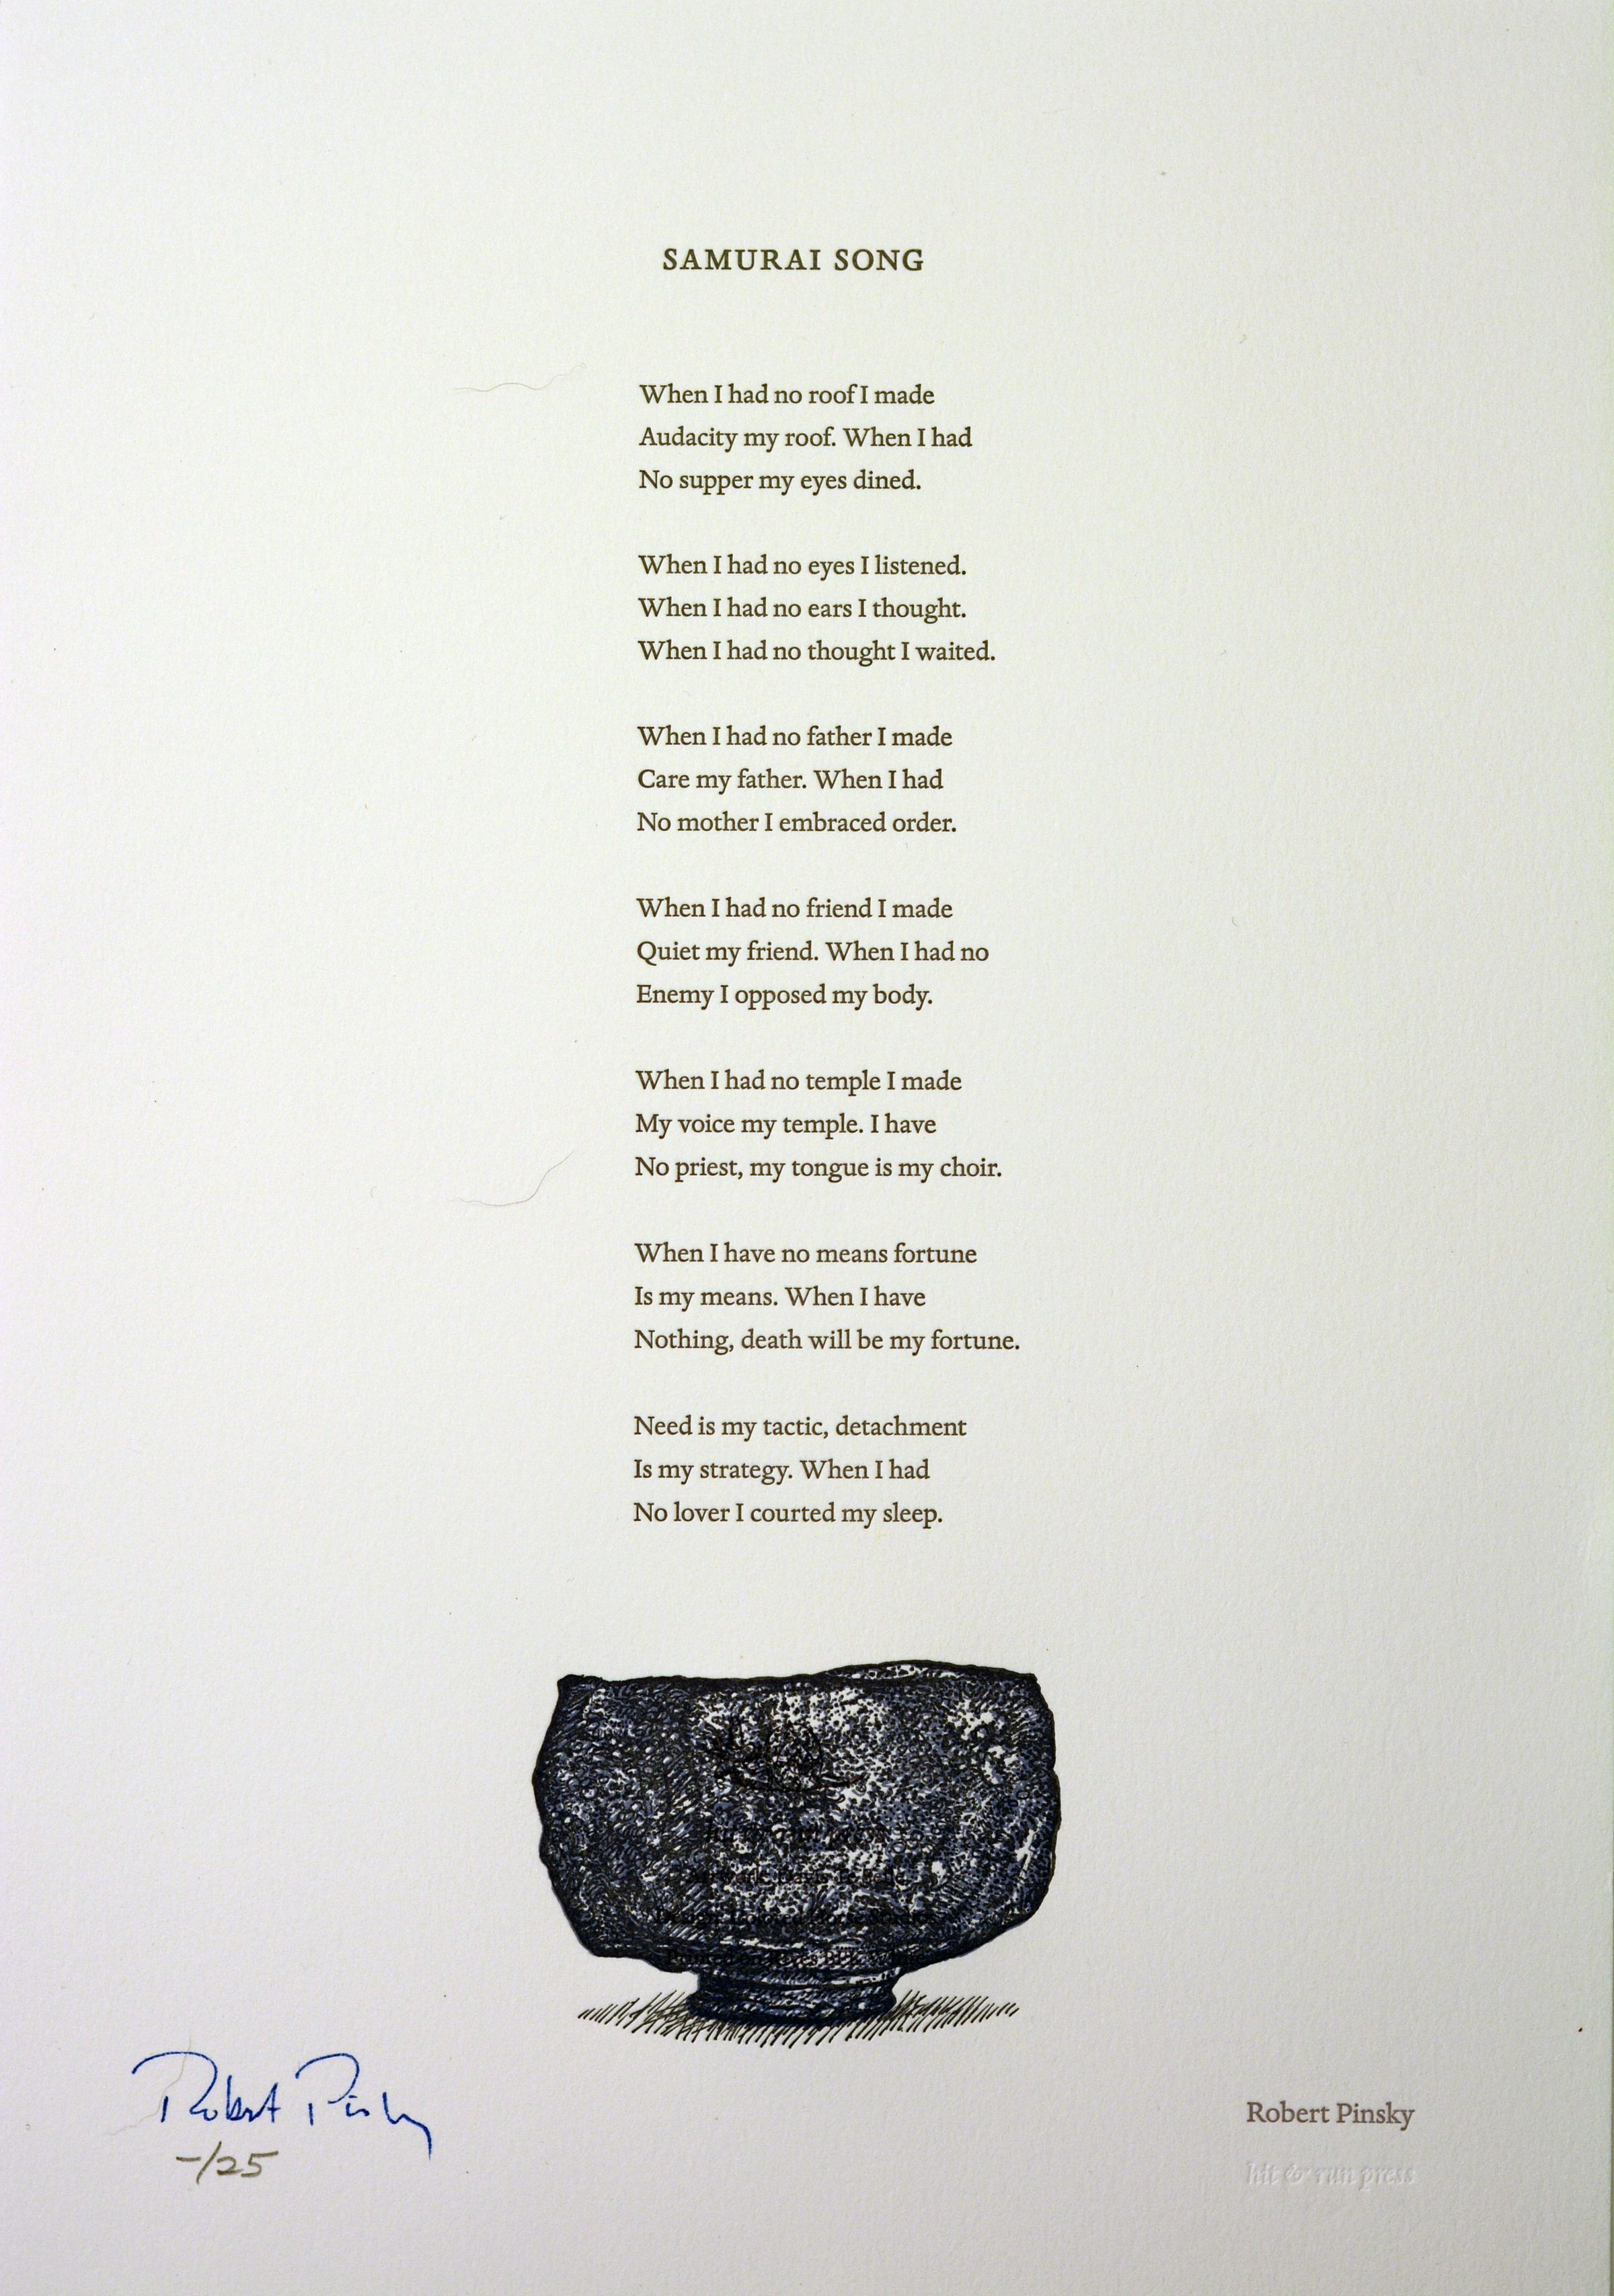 SAMURAI SONG
When I had no roof I made
Audacity my roof. When I had
No supper my eyes dined.
When I had no eyes I listened.
When I had no ears I thought.
When I had no thought I waited.
When I had no father I made
Care my father. When I had
No mother I embraced order.
When I had no friend I made
Quiet my friend. When I had no
Enemy I opposed my body.
When I had no temple I made
My voice my temple. I have
No priest, my tongue is my choir.
When I have no means fortune
Is my means. When I have
Nothing, death will be my fortune.
Need is my tactic, detachment
Is my strategy. When I had
No lover I courted my sleep.
Robert Pinsky
-/25
Robert Pinsky
hit & run press